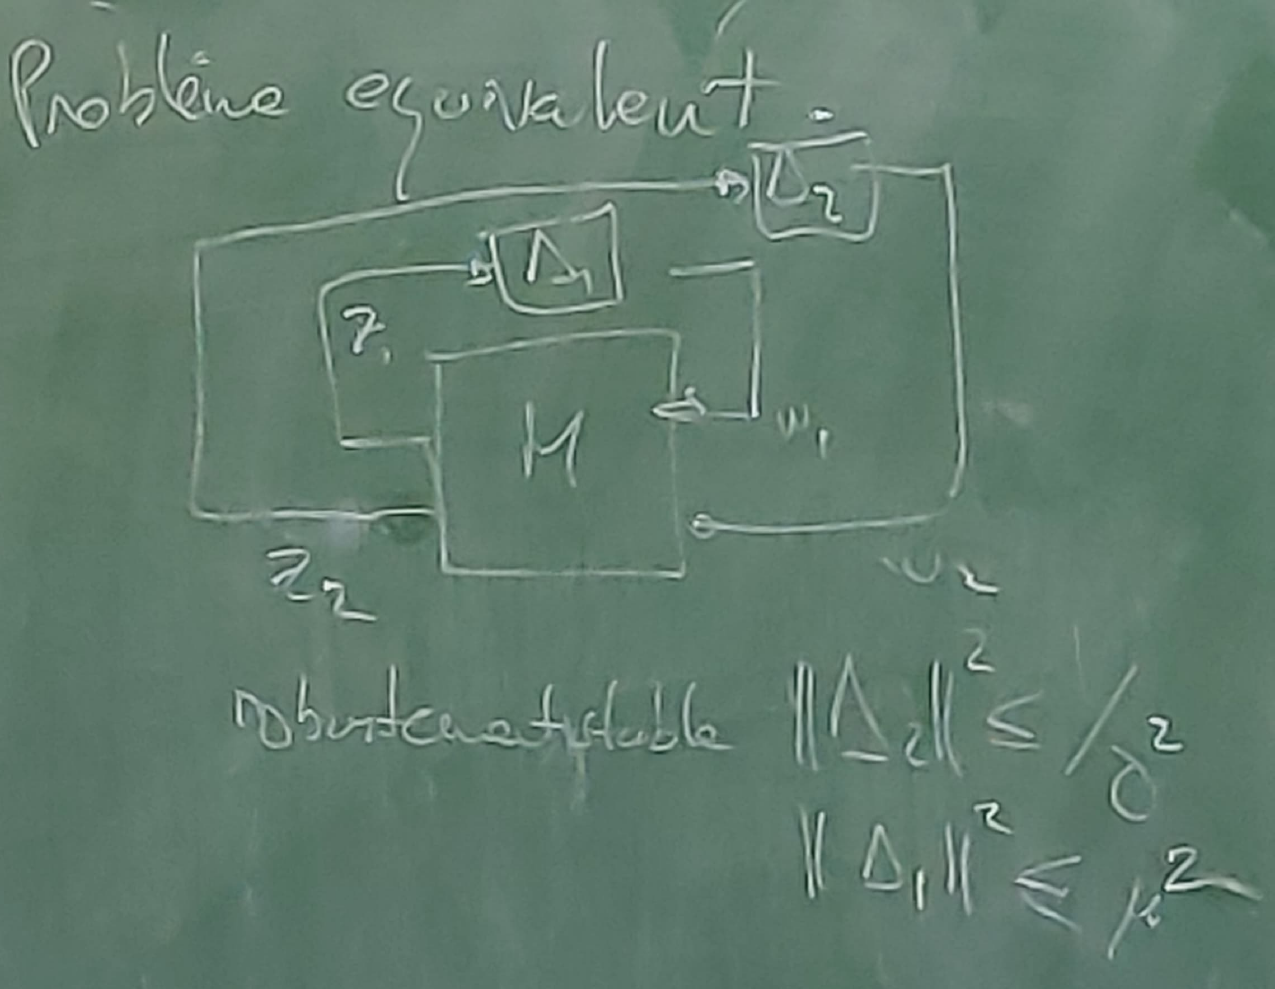 Problème equivalent.
Δ₂
Δ₁
z₁
M
w₁
z₂
w₂
robustement stable ‖Δ₂‖² ≤ 1/γ²
‖Δ₁‖² ≤ μ²